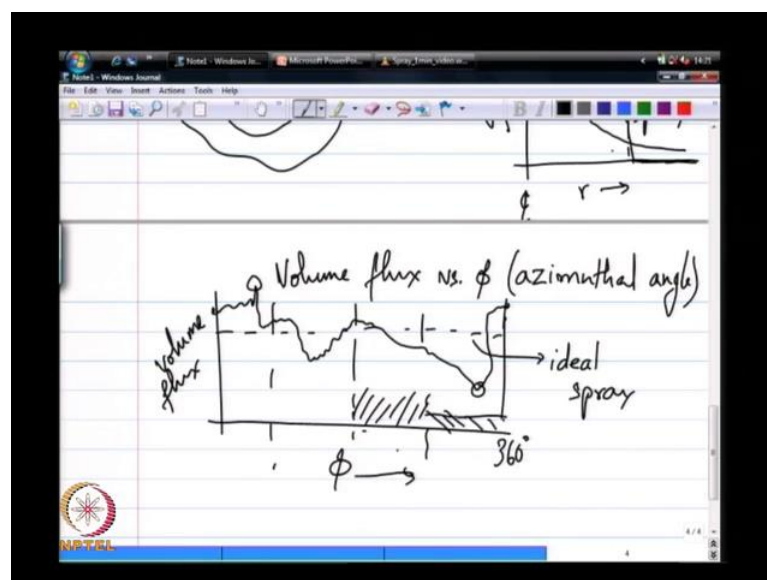 Note1 - Windows Jo...
Microsoft PowerPoi...
Spray_1min_video.w...
14:21
Note1 - Windows Journal
File Edit View Insert Actions Tools Help
B I
r →
Volume flux vs. ϕ (azimuthal angle)
volume
flux
ideal
spray
360°
ϕ →
NPTEL
4/4
4